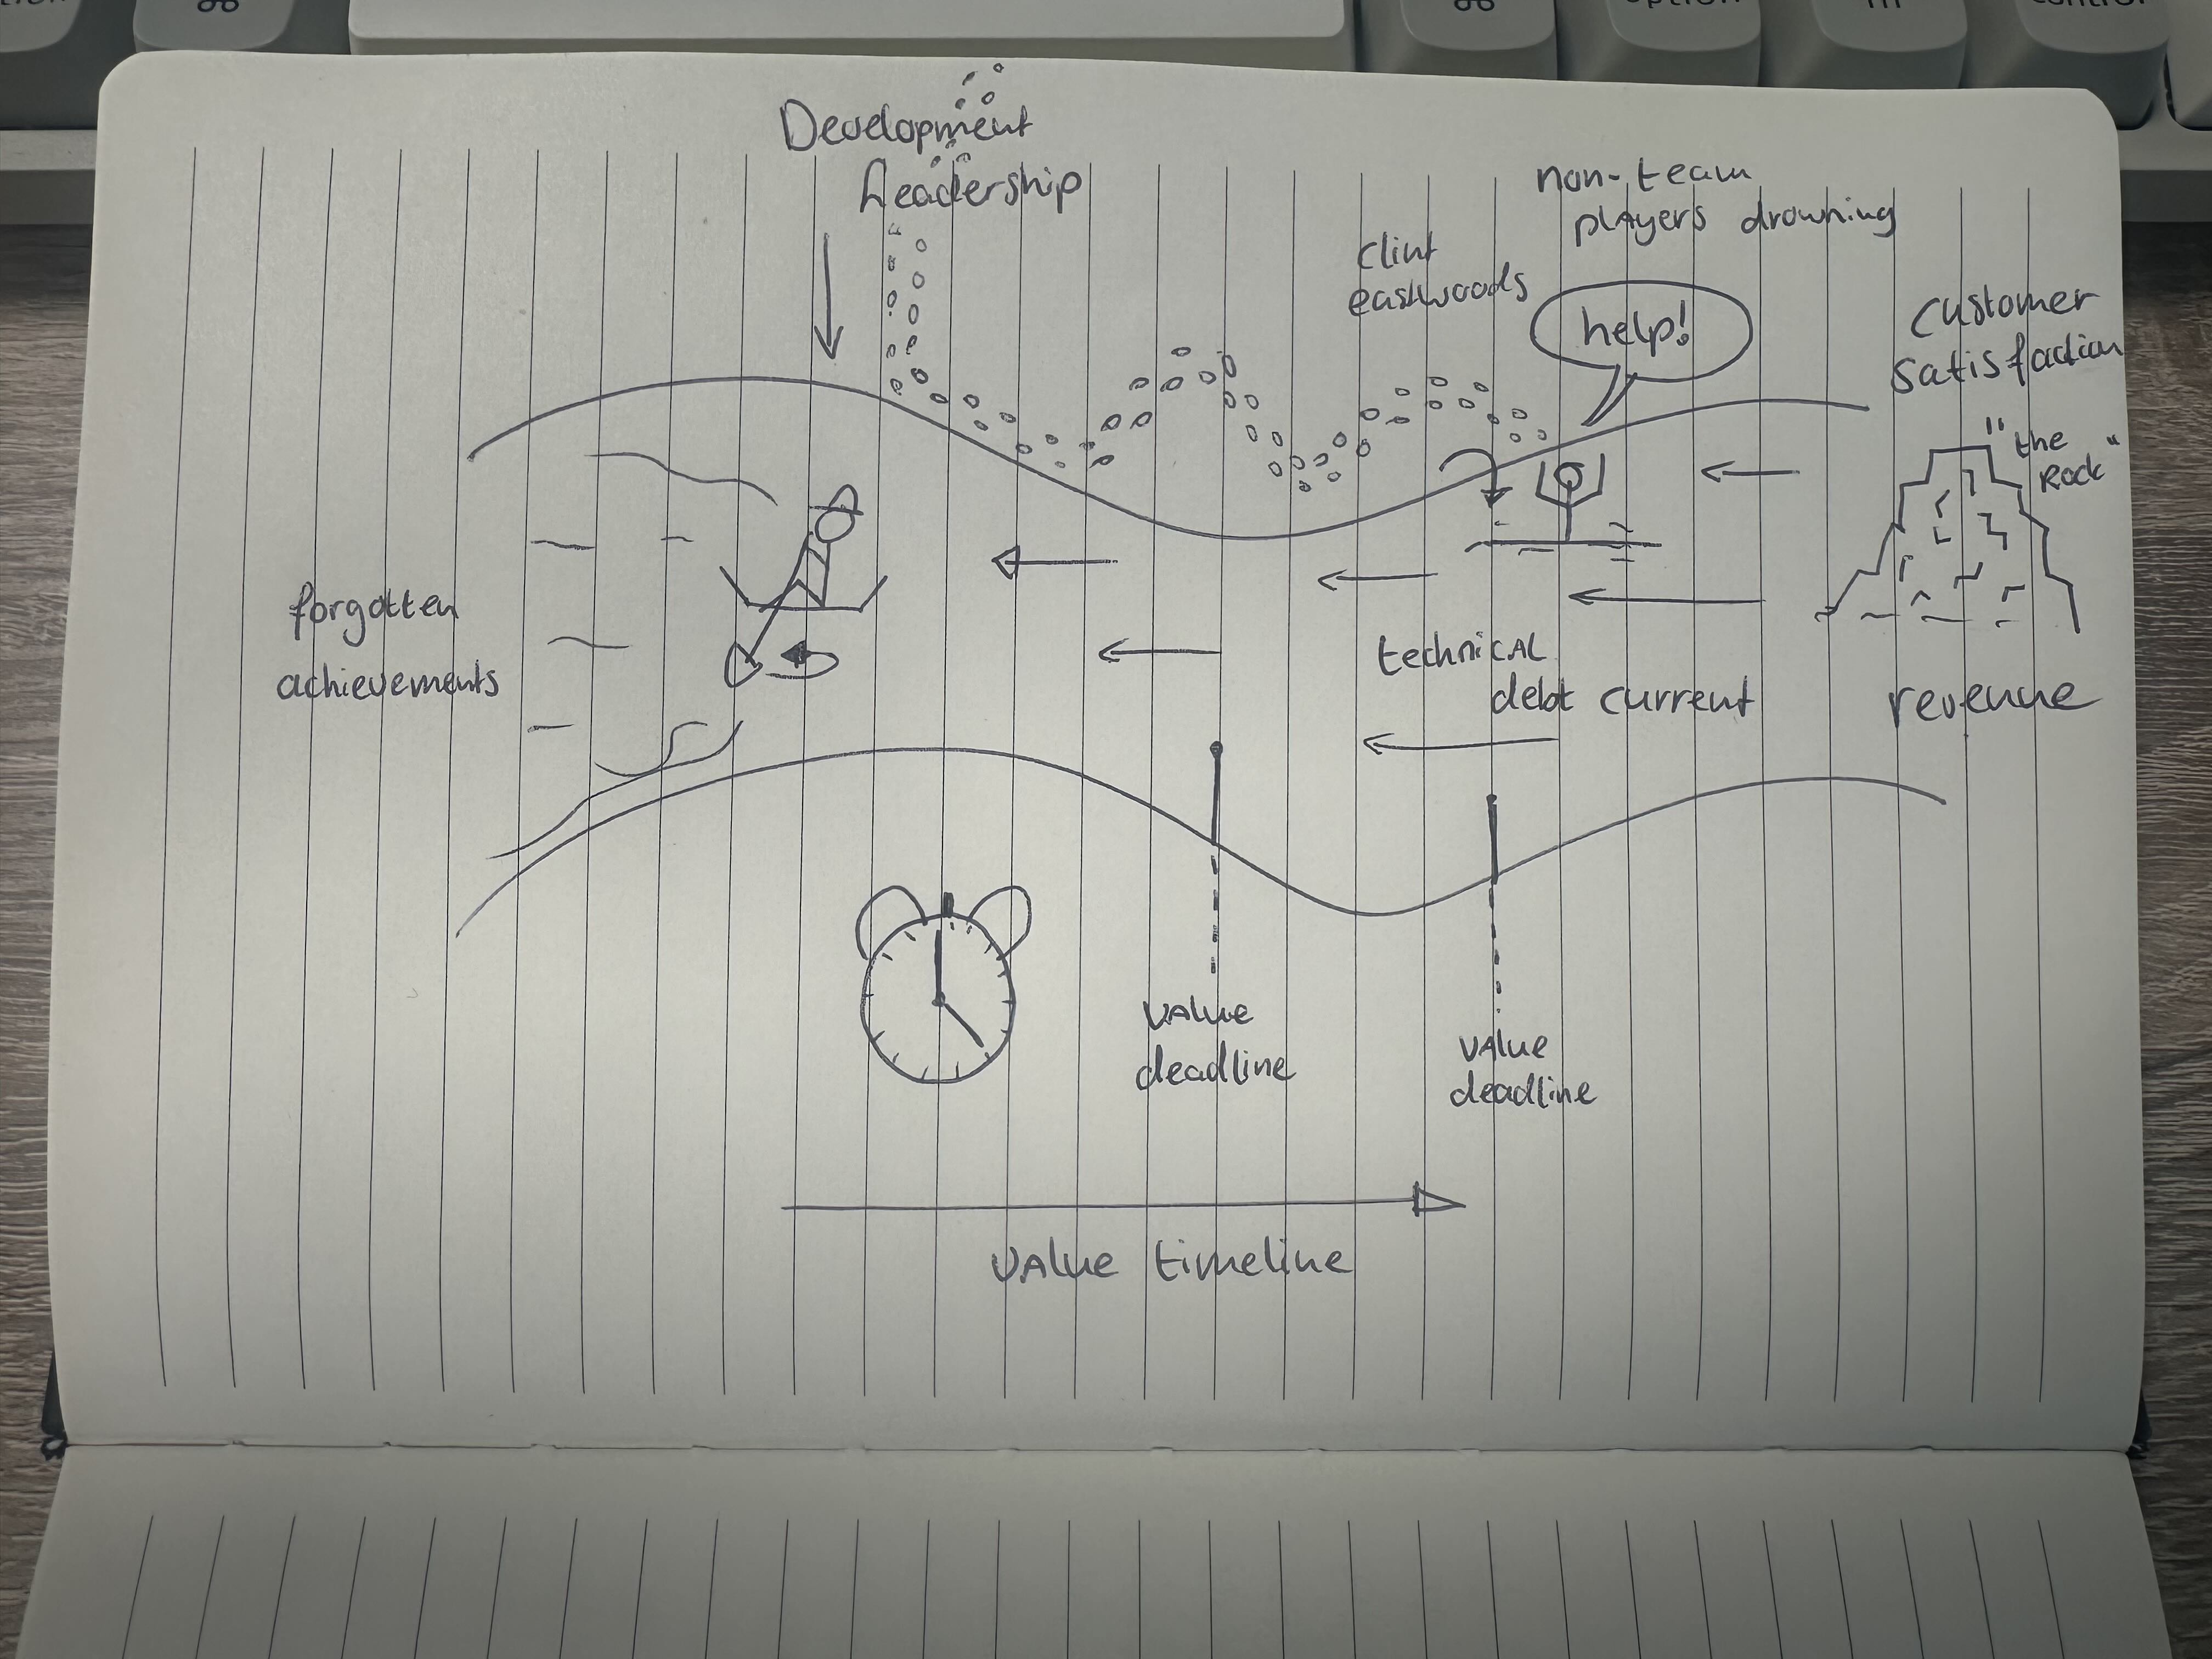 option
⌘
⌘
option
fn
control
Development
Leadership
non-team
players drowning
clint
eastwoods
help!
customer
satisfaction
"the
Rock"
forgotten
achievements
technical
debt current
revenue
value
deadline
value
deadline
value timeline